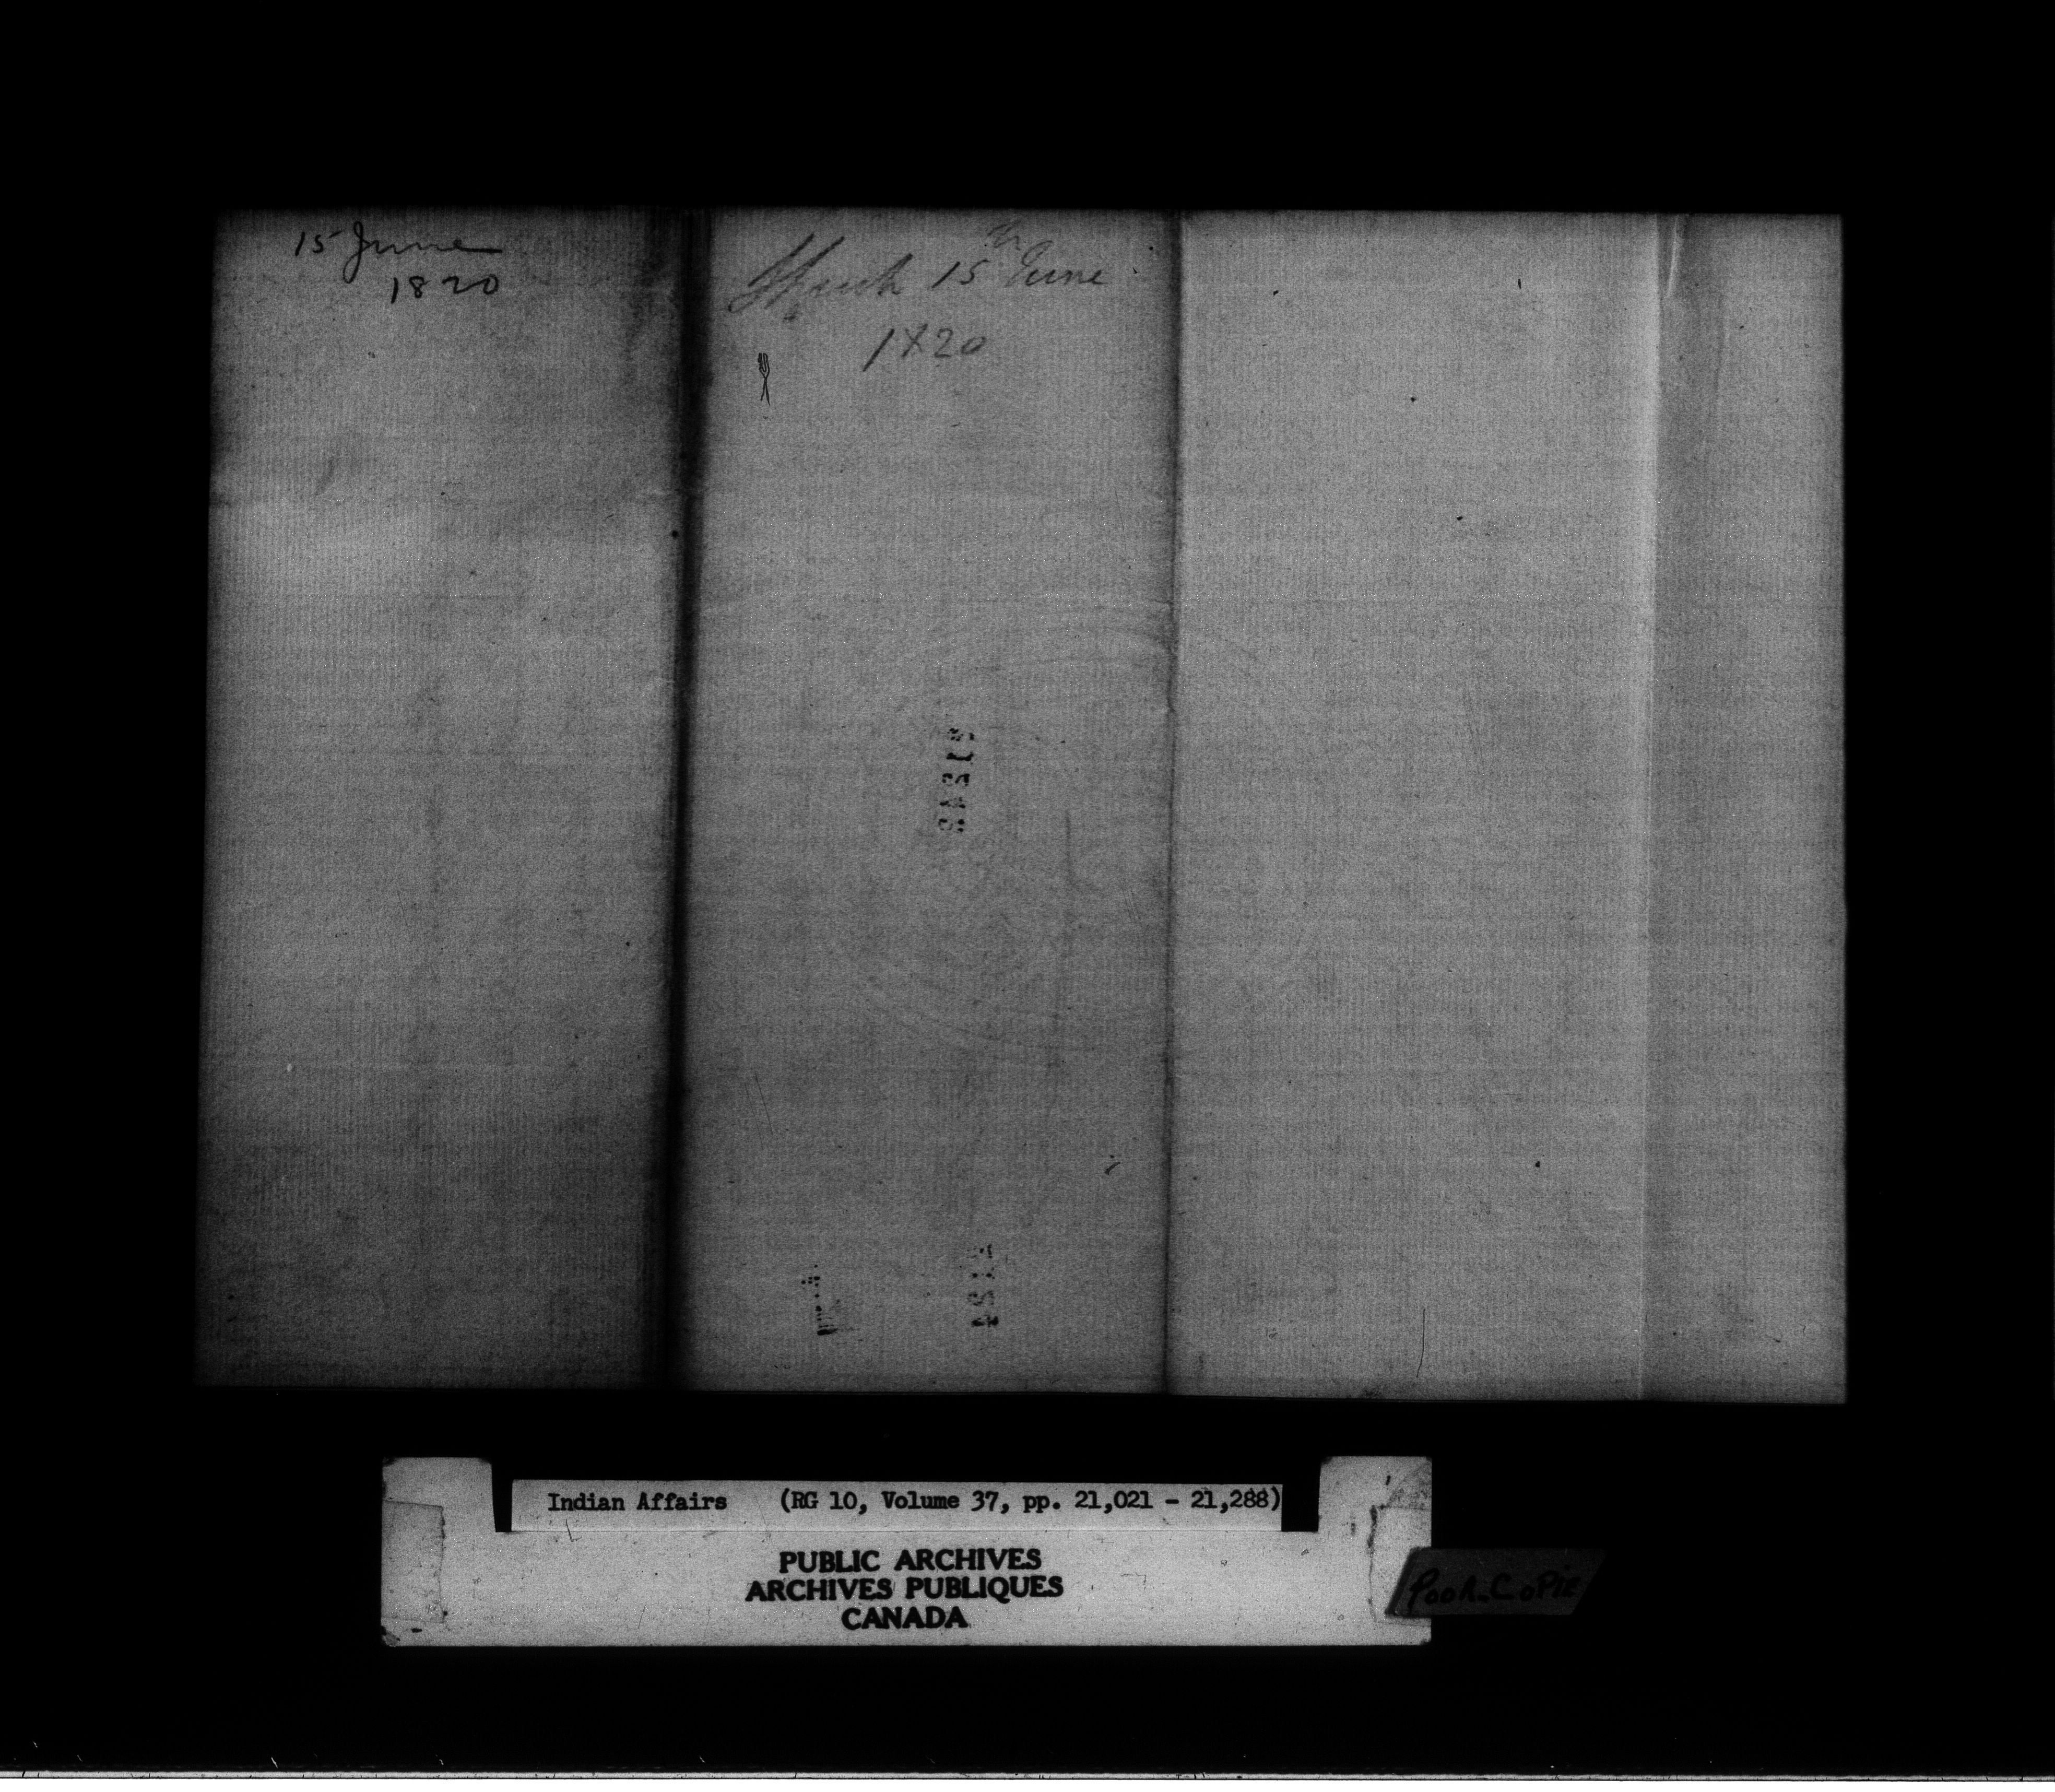 15 June
1820
15th June
1820
Indian Affairs (RG 10, Volume 37, pp. 21,021 - 21,288)
PUBLIC ARCHIVES
ARCHIVES PUBLIQUES
CANADA
POOR COPIE